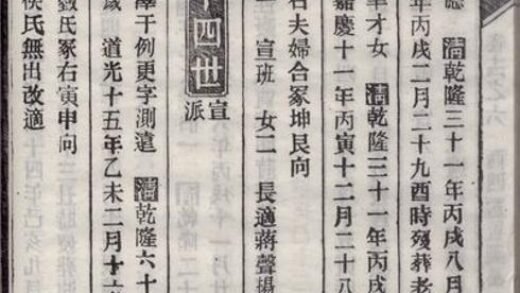 應 清乾隆三十一年丙戌八月
年丙戌二月二十九酉時歿葬老
年才女 清乾隆三十一年丙戌
嘉慶十一年丙寅十二月二十八
右夫婦合冢坤艮向
一 宣班 女二 長適蔣聲揚
十四世 宣派
澤干例更字測遠 清乾隆六十
歲 道光十五年乙未二月十六
毅氏冢右寅申向
侯氏無出改適